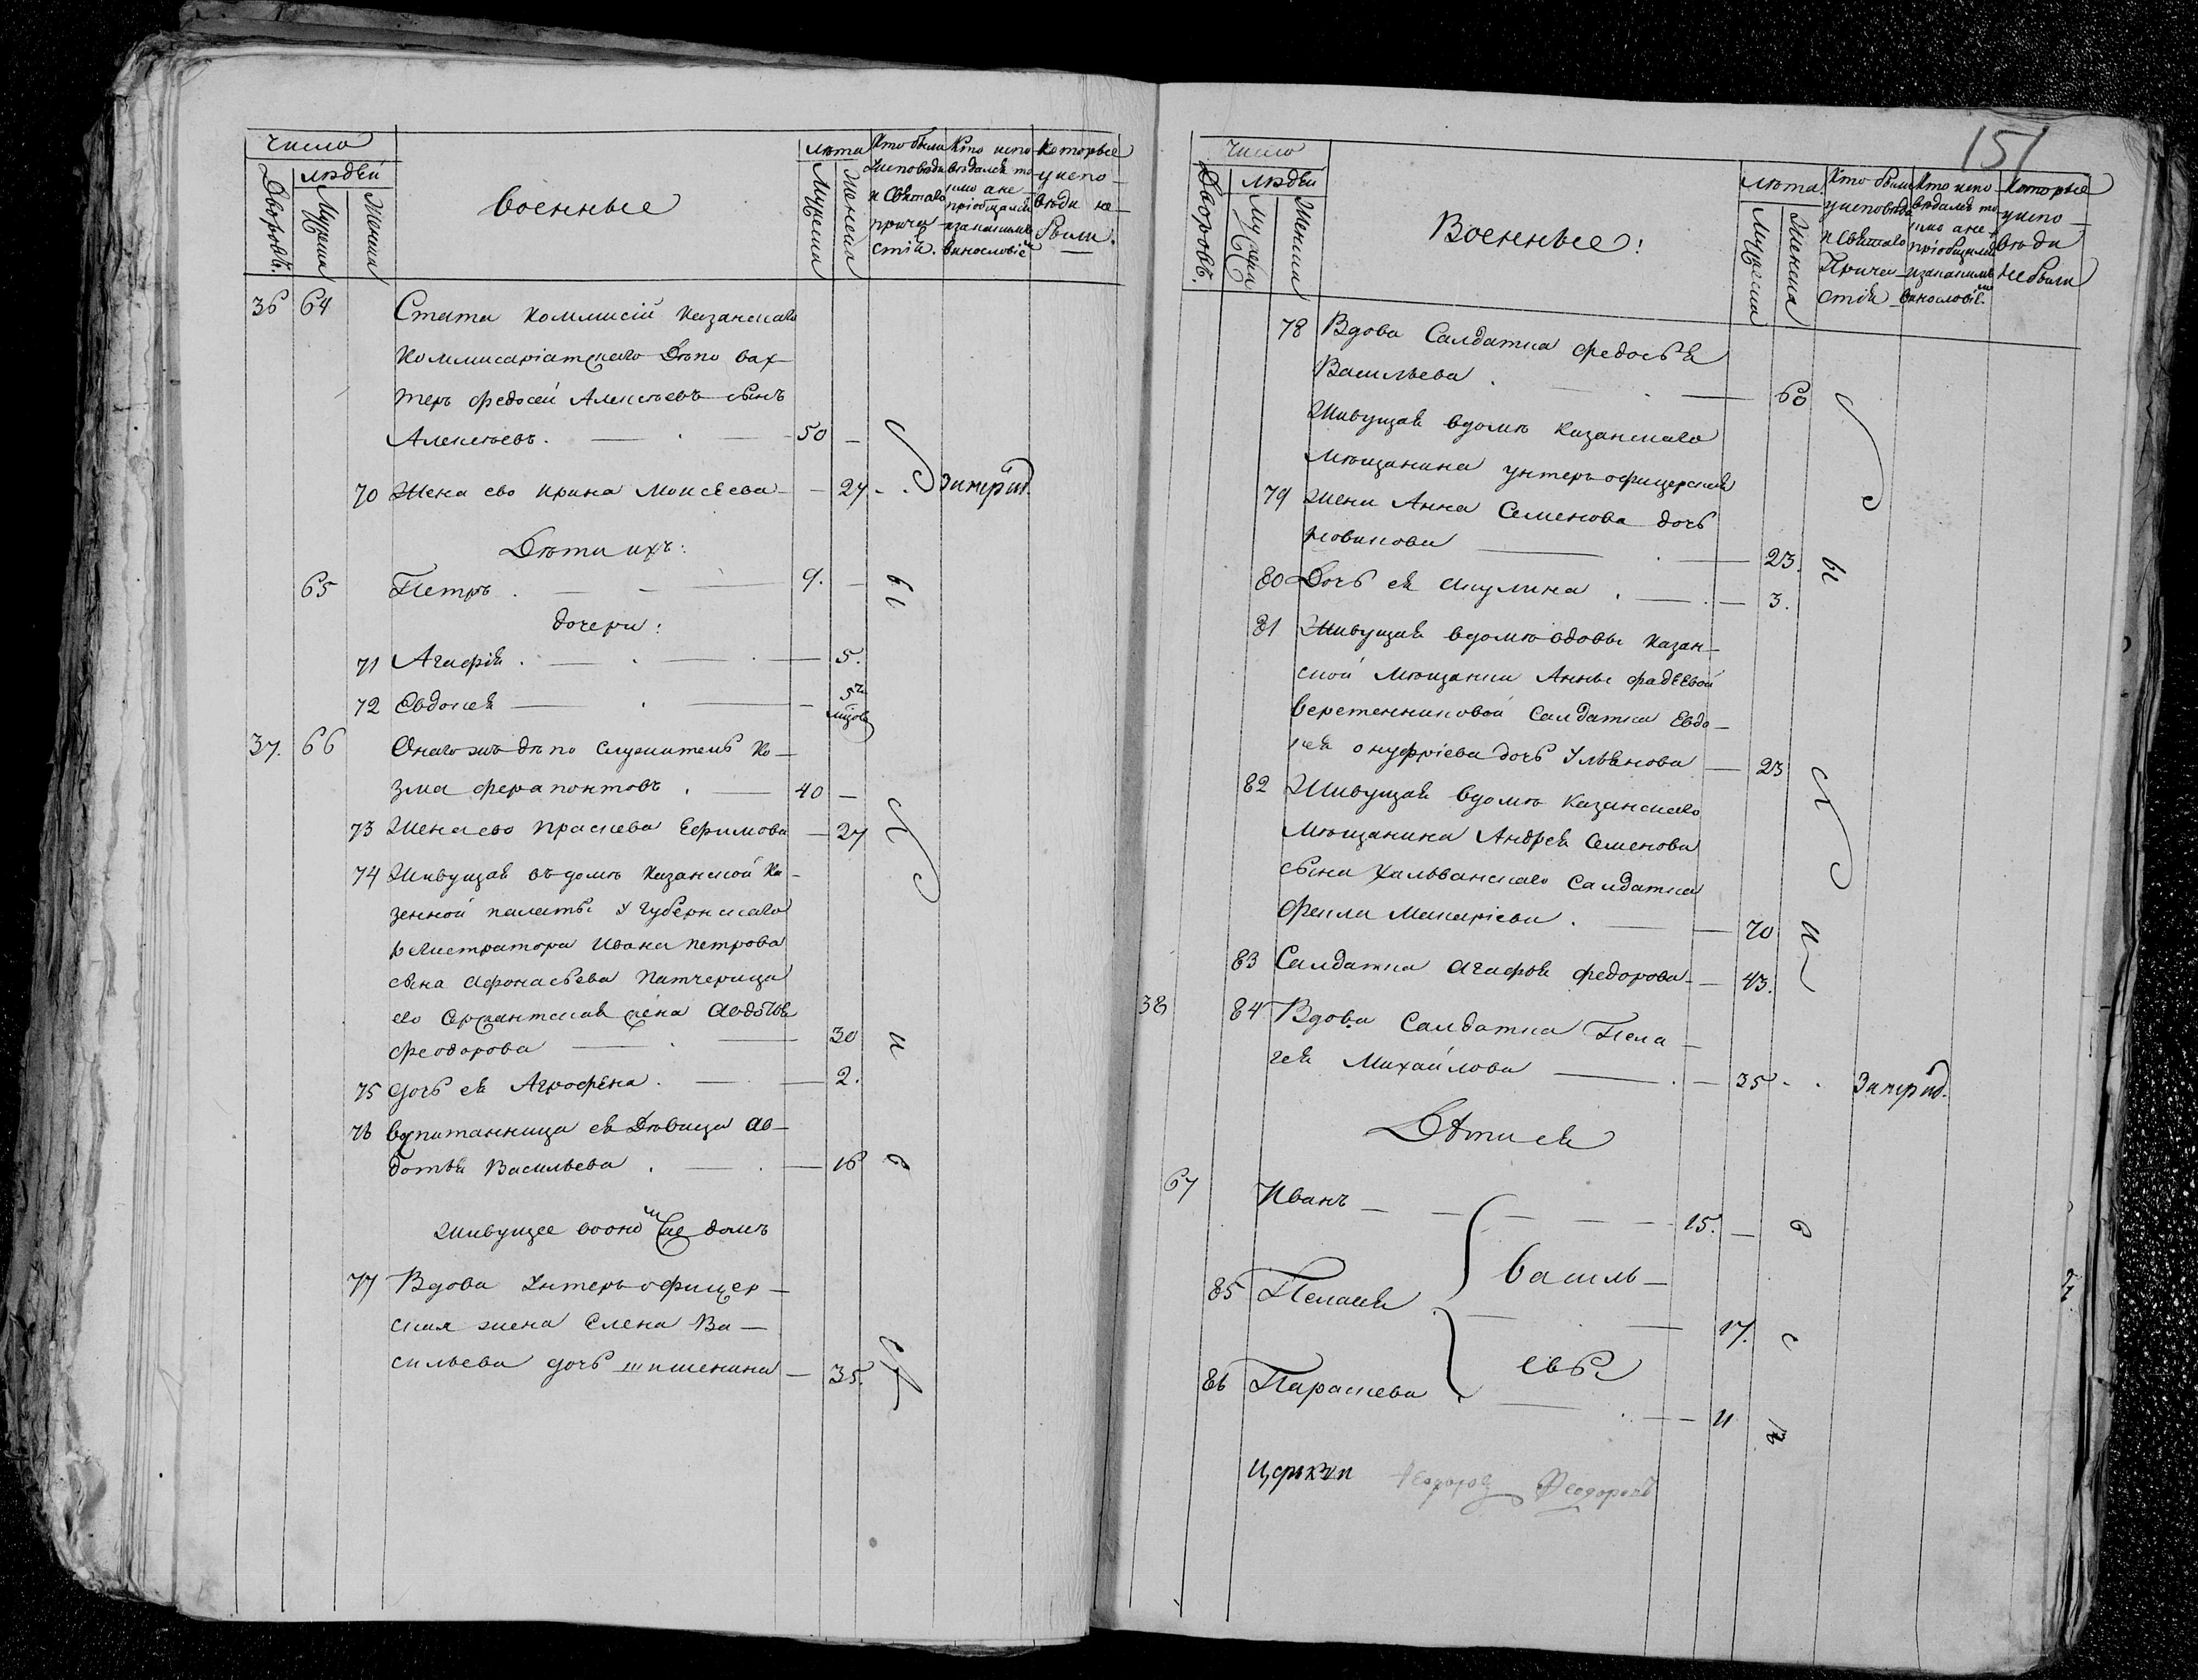 число
людей
Дворовъ.
Мужска
Женска
военные
лѣта
Мужска
Женска
Кто были
Кто испо
Которые
Исповѣди
вѣдался то
у испо
и Святаго
кмо а не
вѣди не
причи
пріобщался
были.
стія.
и за какимъ
винословіем
36 64 Стата Коммисіи Казанскаго
Коммисаріатскаго Депо вах
теръ Федосей Алексѣевъ сынъ
Алексѣевъ. 50
70 Жена ево Ирина Моисѣева 27
Дѣти ихъ:
65 Петръ 9.
дочери:
71 Агафія 5.
72 Евдокея 5ти
мцовъ
37. 66 Онаго жъ депо служитель Ко
зма Ферапонтовъ 40
73 Жена ево Праскева Ефимова 27
74 Живущая въ домѣ Казанской Ка
зенной палаты у Губернскаго
регистратора Ивана Петрова
сына Афонасьева Патчерица
его Сержантская жена Авдотья
Феодорова 30
75 дочь ея Агрофена 2.
76 воспитанница ея Дѣвица Ав
дотья Васильева 16
Живущее во ономже домѣ
77 Вдова Унтеръ офицер
ская жена Елена Ва
сильева дочь Шишенина 35.
151
число
людей
Дворовъ.
Мужска
Женска
Военные:
лѣта.
Мужска
Женска
Кто были
Кто испо
Которые
у исповѣди
вѣдалъ то
у испо
и Святаго
кмо а не
вѣди
Прича
пріобщился
не были
стія
и за какимъ
винословіем
78 Вдова Салдатка Федосья
Васильева 60
Живущая в домѣ Казанскаго
Мѣщанина унтеръ офицерская
79 жена Анна Семенова дочь
Новикова 23.
80 Дочь ея Акулина 3.
81 Живущая в домѣ вдовы Казан
ской Мѣщанки Анны Фадѣевой
Веретенниковой Салдатка Евдо
кея Онуфріева дочь Ульянова 23
82 Живущая в домѣ Казанскаго
Мѣщанина Андрея Семенова
сына Хальванскаго Салдатка
Фекла Макаріева 70
83 Салдатка Агафья Федорова 43.
38 84 Вдова Салдатка Пела
гея Михайлова 35
Дѣти ея
67 Иванъ 15.
Василь
85 Пелагея 17.
евы
86 Параскева 11
Церкви Феодоръ Феодоровъ